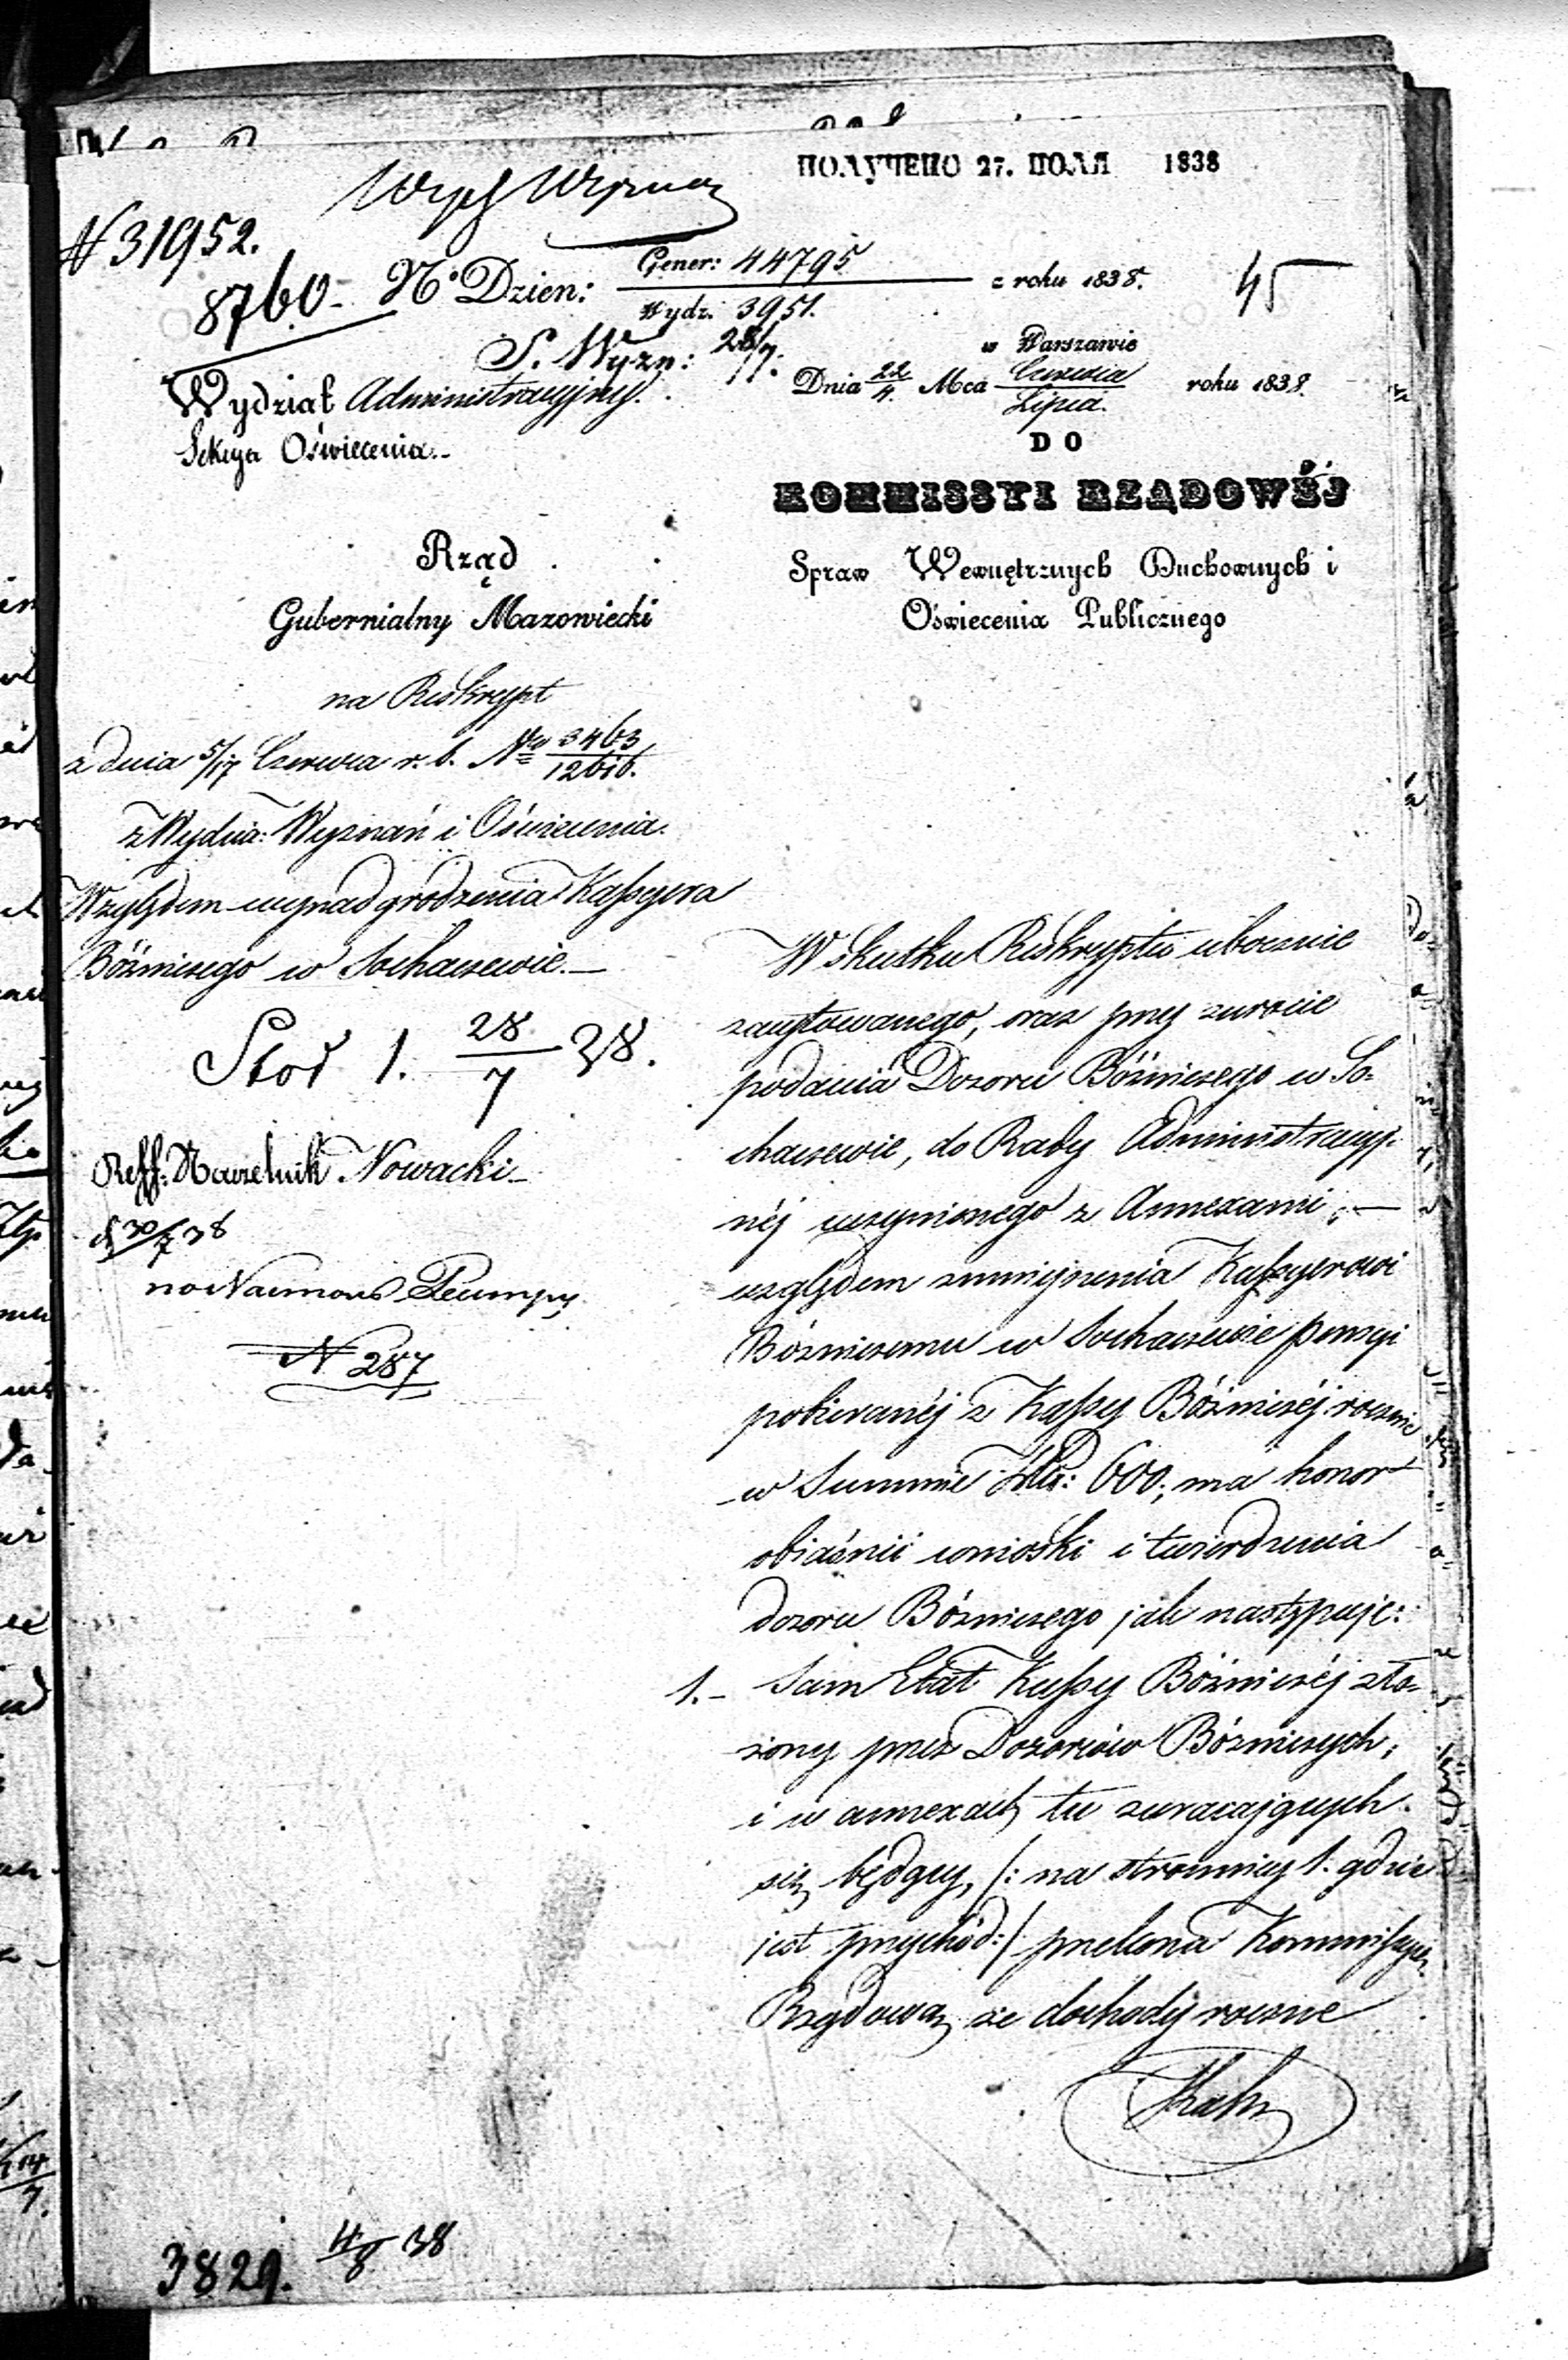 ПОЛУЧЕНО 27. ІЮЛЯ 1838
N 31952.
8760 - Nº Dzien: Gener: 44795 / Wydz. 3951. z roku 1838.
45
S. Wyzn: 28/7.
w Warszawie
Dnia 22/4. Mca Czerwca / Lipca. roku 1838.
Wydział Administracyjny.
Sekcya Oświecenia.-
DO
KOMMISSYI RZĄDOWÉJ
Spraw Wewnętrznych Duchownych i
Oświecenia Publicznego
Rząd
Gubernialny Mazowiecki
na Reskrypt
z dnia 5/17 Czerwca r. b. Nro 3463 / 12616.
z Wydzia: Wyznań i Oświecenia.
Względem wynadgrodzenia Kassyera
Bóżniczego w Sochaczewie.—
1. 28/7 38.
Reff. Naczelnik Nowacki -
30/7 38
N 287
W skutku Reskryptu ubocznie
zacytowanego, oraz przy zwrocie
podania Dozoru Bóżniczego w So-
chaczewie, do Rady Administracyj-
néj uczynionego z Annexami, —
względem zmniejszenia Kassyerowi
Bóżniczemu w Sochaczewie pensyi
pobieranéj z Kassy Bóżniczéj rocznie
w Summie Złp: 600; ma honor
obiaśnić wnioski i twierdzenia
dozoru Bózniczego jak następuje:
1.- Sam Etat Kassy Bóżniczéj zło-
żony przez Dozorców Bózniczych,
i w annexach tu zwracających
się będący, /: na stronnicy 1. gdzie
jest przychód :/ przekona Kommissyę
Rządową że dochody roczne
3829. 4/8 38